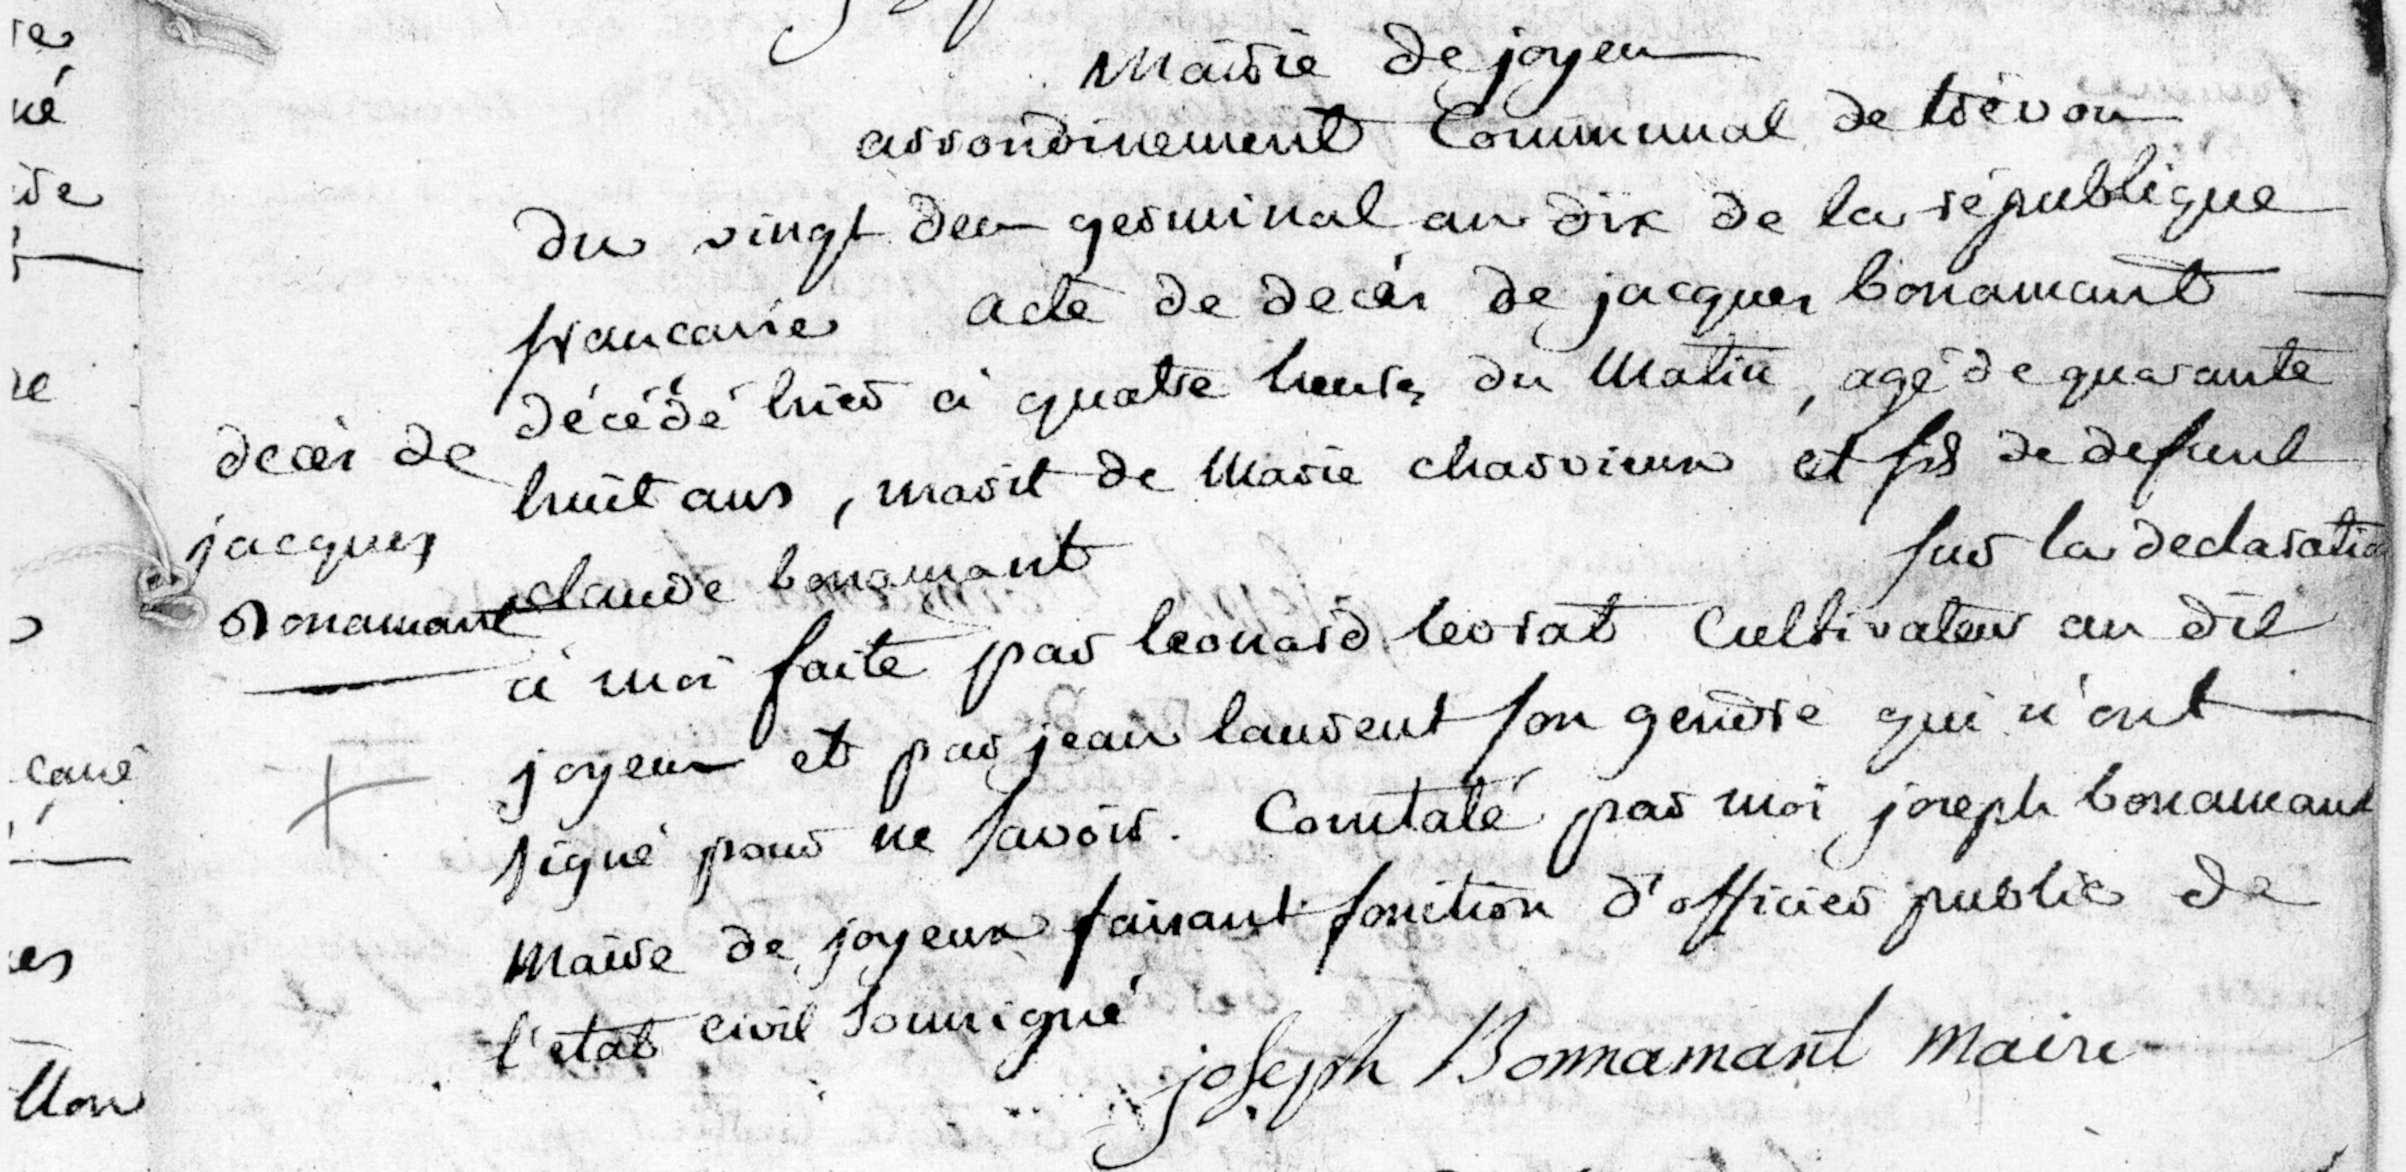 Mairie de joyeu
arrondinement Communal de trévou
du vingt deu germinal an dix de la république
francaise acte de decès de jacques bonamant
décédé hier à quatre heures du Matin, agé de quarante
huit ans, marit de Marie charvieux et fils de defunt
claude bonamant sur la declaration
à moi faite par leonard leorat Cultivateur au dit
joyeux et par jean laurent son gendre qui n'ont
signé pour ne savoir. Constaté par moi joseph bonamant
Maire de joyeux faisant fonction d'officier public de
l'etat civil soussigné
joseph Bonnamant Maire
decès de
jacques
Bonamant